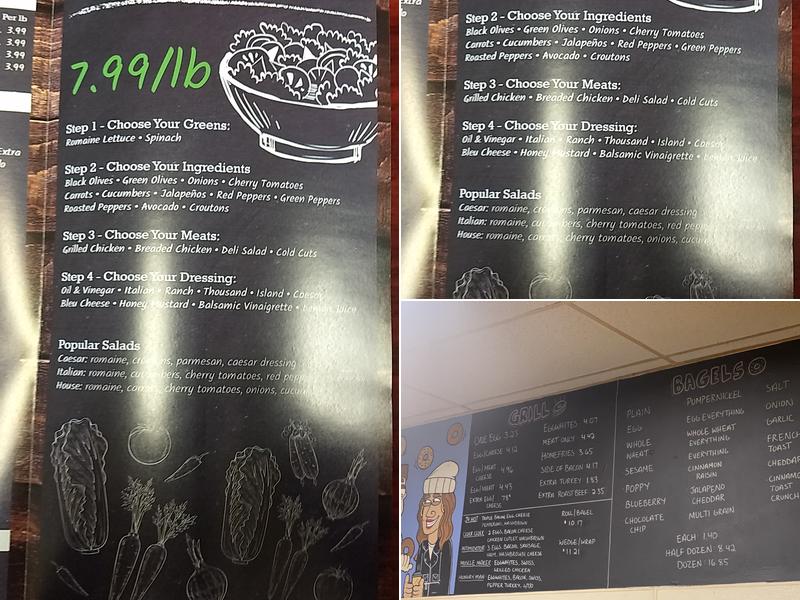 Per lb
3.99
3.99
3.99
3.99
Extra
7.99/lb
Step 1 - Choose Your Greens:
Romaine Lettuce • Spinach
Step 2 - Choose Your Ingredients
Black Olives • Green Olives • Onions • Cherry Tomatoes
Carrots • Cucumbers • Jalapeños • Red Peppers • Green Peppers
Roasted Peppers • Avocado • Croutons
Step 3 - Choose Your Meats:
Grilled Chicken • Breaded Chicken • Deli Salad • Cold Cuts
Step 4 - Choose Your Dressing:
Oil & Vinegar • Italian • Ranch • Thousand • Island • Caesar
Bleu Cheese • Honey Mustard • Balsamic Vinaigrette • Lemon Juice
Popular Salads
Caesar: romaine, croutons, parmesan, caesar dressing
Italian: romaine, cucumbers, cherry tomatoes, red
House: romaine, carrots, cherry tomatoes, onions,
Extra
Step 2 - Choose Your Ingredients
Black Olives • Green Olives • Onions • Cherry Tomatoes
Carrots • Cucumbers • Jalapeños • Red Peppers • Green Peppers
Roasted Peppers • Avocado • Croutons
Step 3 - Choose Your Meats:
Grilled Chicken • Breaded Chicken • Deli Salad • Cold Cuts
Step 4 - Choose Your Dressing:
Oil & Vinegar • Italian • Ranch • Thousand • Island • Caesar
Bleu Cheese • Honey Mustard • Balsamic Vinaigrette • Lemon Juice
Popular Salads
Caesar: romaine, croutons, parmesan, caesar dressing
Italian: romaine, cucumbers, cherry tomatoes, red
House: romaine, carrots, cherry tomatoes, onions,
GRILL
ONE EGG 3.25
EGG/CHEESE 4.12
EGG/MEAT CHEESE 4.96
EGG/MEAT 4.43
EXTRA EGG/ CHEESE .78
EGGWHITES 4.07
MEAT ONLY 4.42
HOMEFRIES 3.65
SIDE OF BACON 4.17
EXTRA TURKEY 1.83
EXTRA ROAST BEEF 2.35
TRIPLE BACON, EGG, CHEESE
PEPPERONI, HASHBROWN
2 EGGS, BACON, CHEESE
CHICKEN CUTLET, HASHBROWN
3 EGGS, BACON, SAUSAGE,
HAM, HASHBROWN, CHEESE
MUSCLE MAKER EGGWHITES, SWISS,
GRILLED CHICKEN
HUNGRY MAN EGGWHITES, BACON, SWISS,
PEPPER TURKEY,
ROLL/BAGEL
$10.17
WEDGE/WRAP
$11.21
BAGELS
PLAIN
EGG
WHOLE WHEAT
SESAME
POPPY
BLUEBERRY
CHOCOLATE CHIP
PUMPERNICKEL
EGG EVERYTHING
WHOLE WHEAT EVERYTHING
EVERYTHING
CINNAMON RAISIN
JALAPENO CHEDDAR
MULTI GRAIN
SALT
ONION
GARLIC
FRENCH TOAST
CHEDDAR
CINNAMON TOAST CRUNCH
EACH 1.40
HALF DOZEN 8.42
DOZEN 16.85